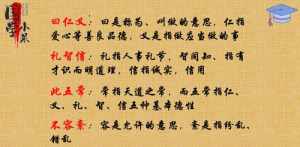 国学
小菜
曰仁义：曰是称为、叫做的意思，仁指
爱心等善良品德，又是指做应当做的事
礼智信：礼指人事礼节，智同知、指有
才识而明道理，信指诚实，信用
此五常：常指天道之常，而五常指仁、
义、礼、智、信五种基本德性
不容紊：容是允许的意思，紊是指纷乱、
错乱